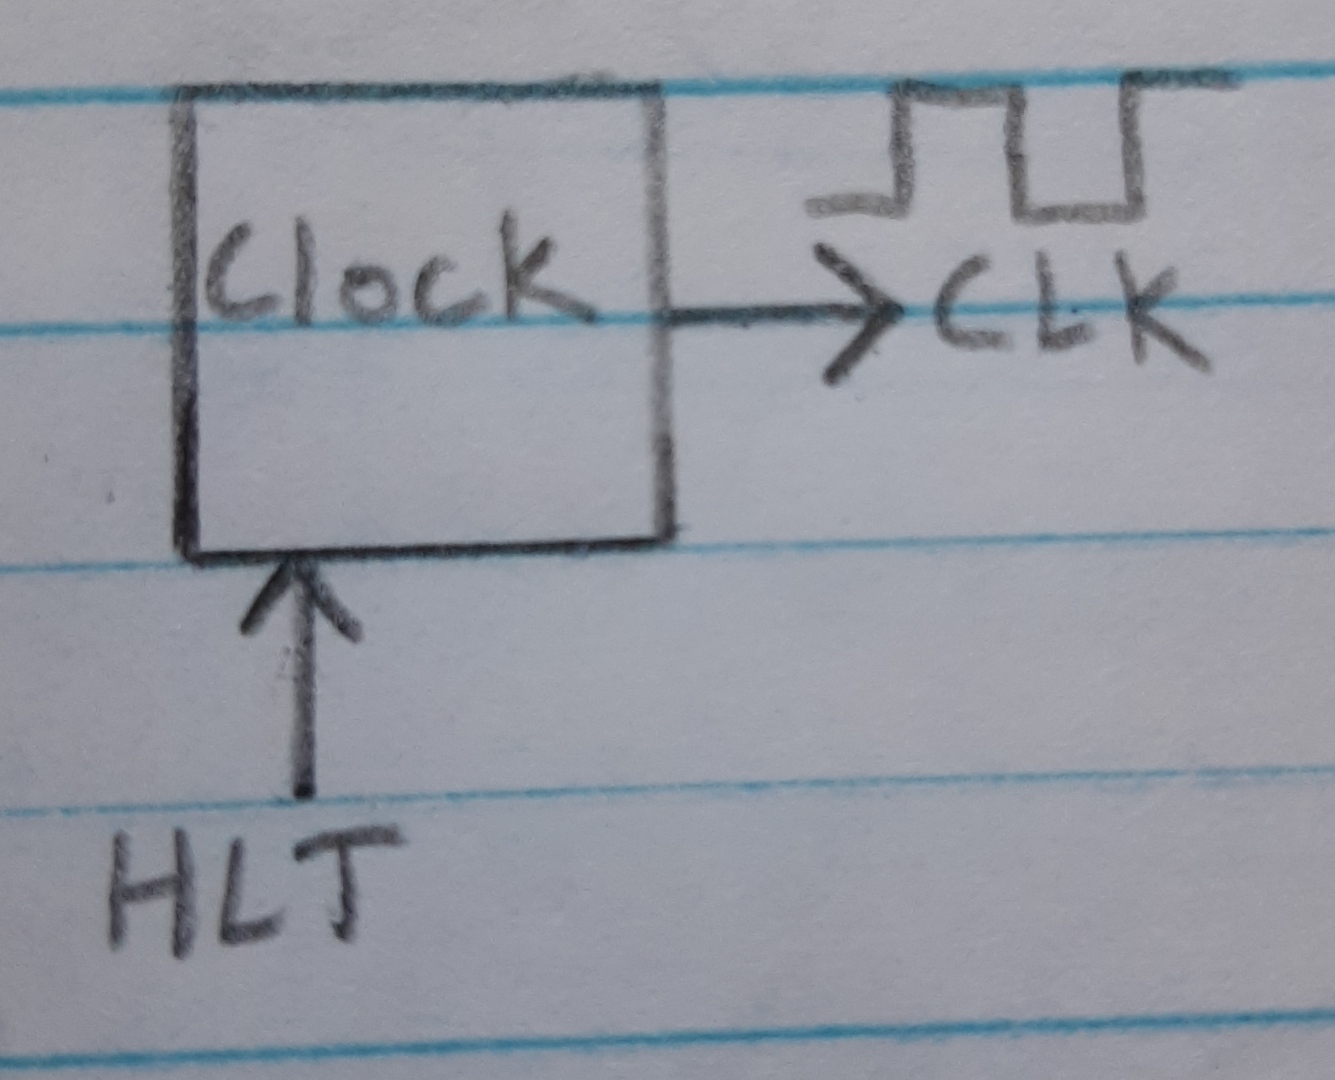 Clock
CLK
HLT